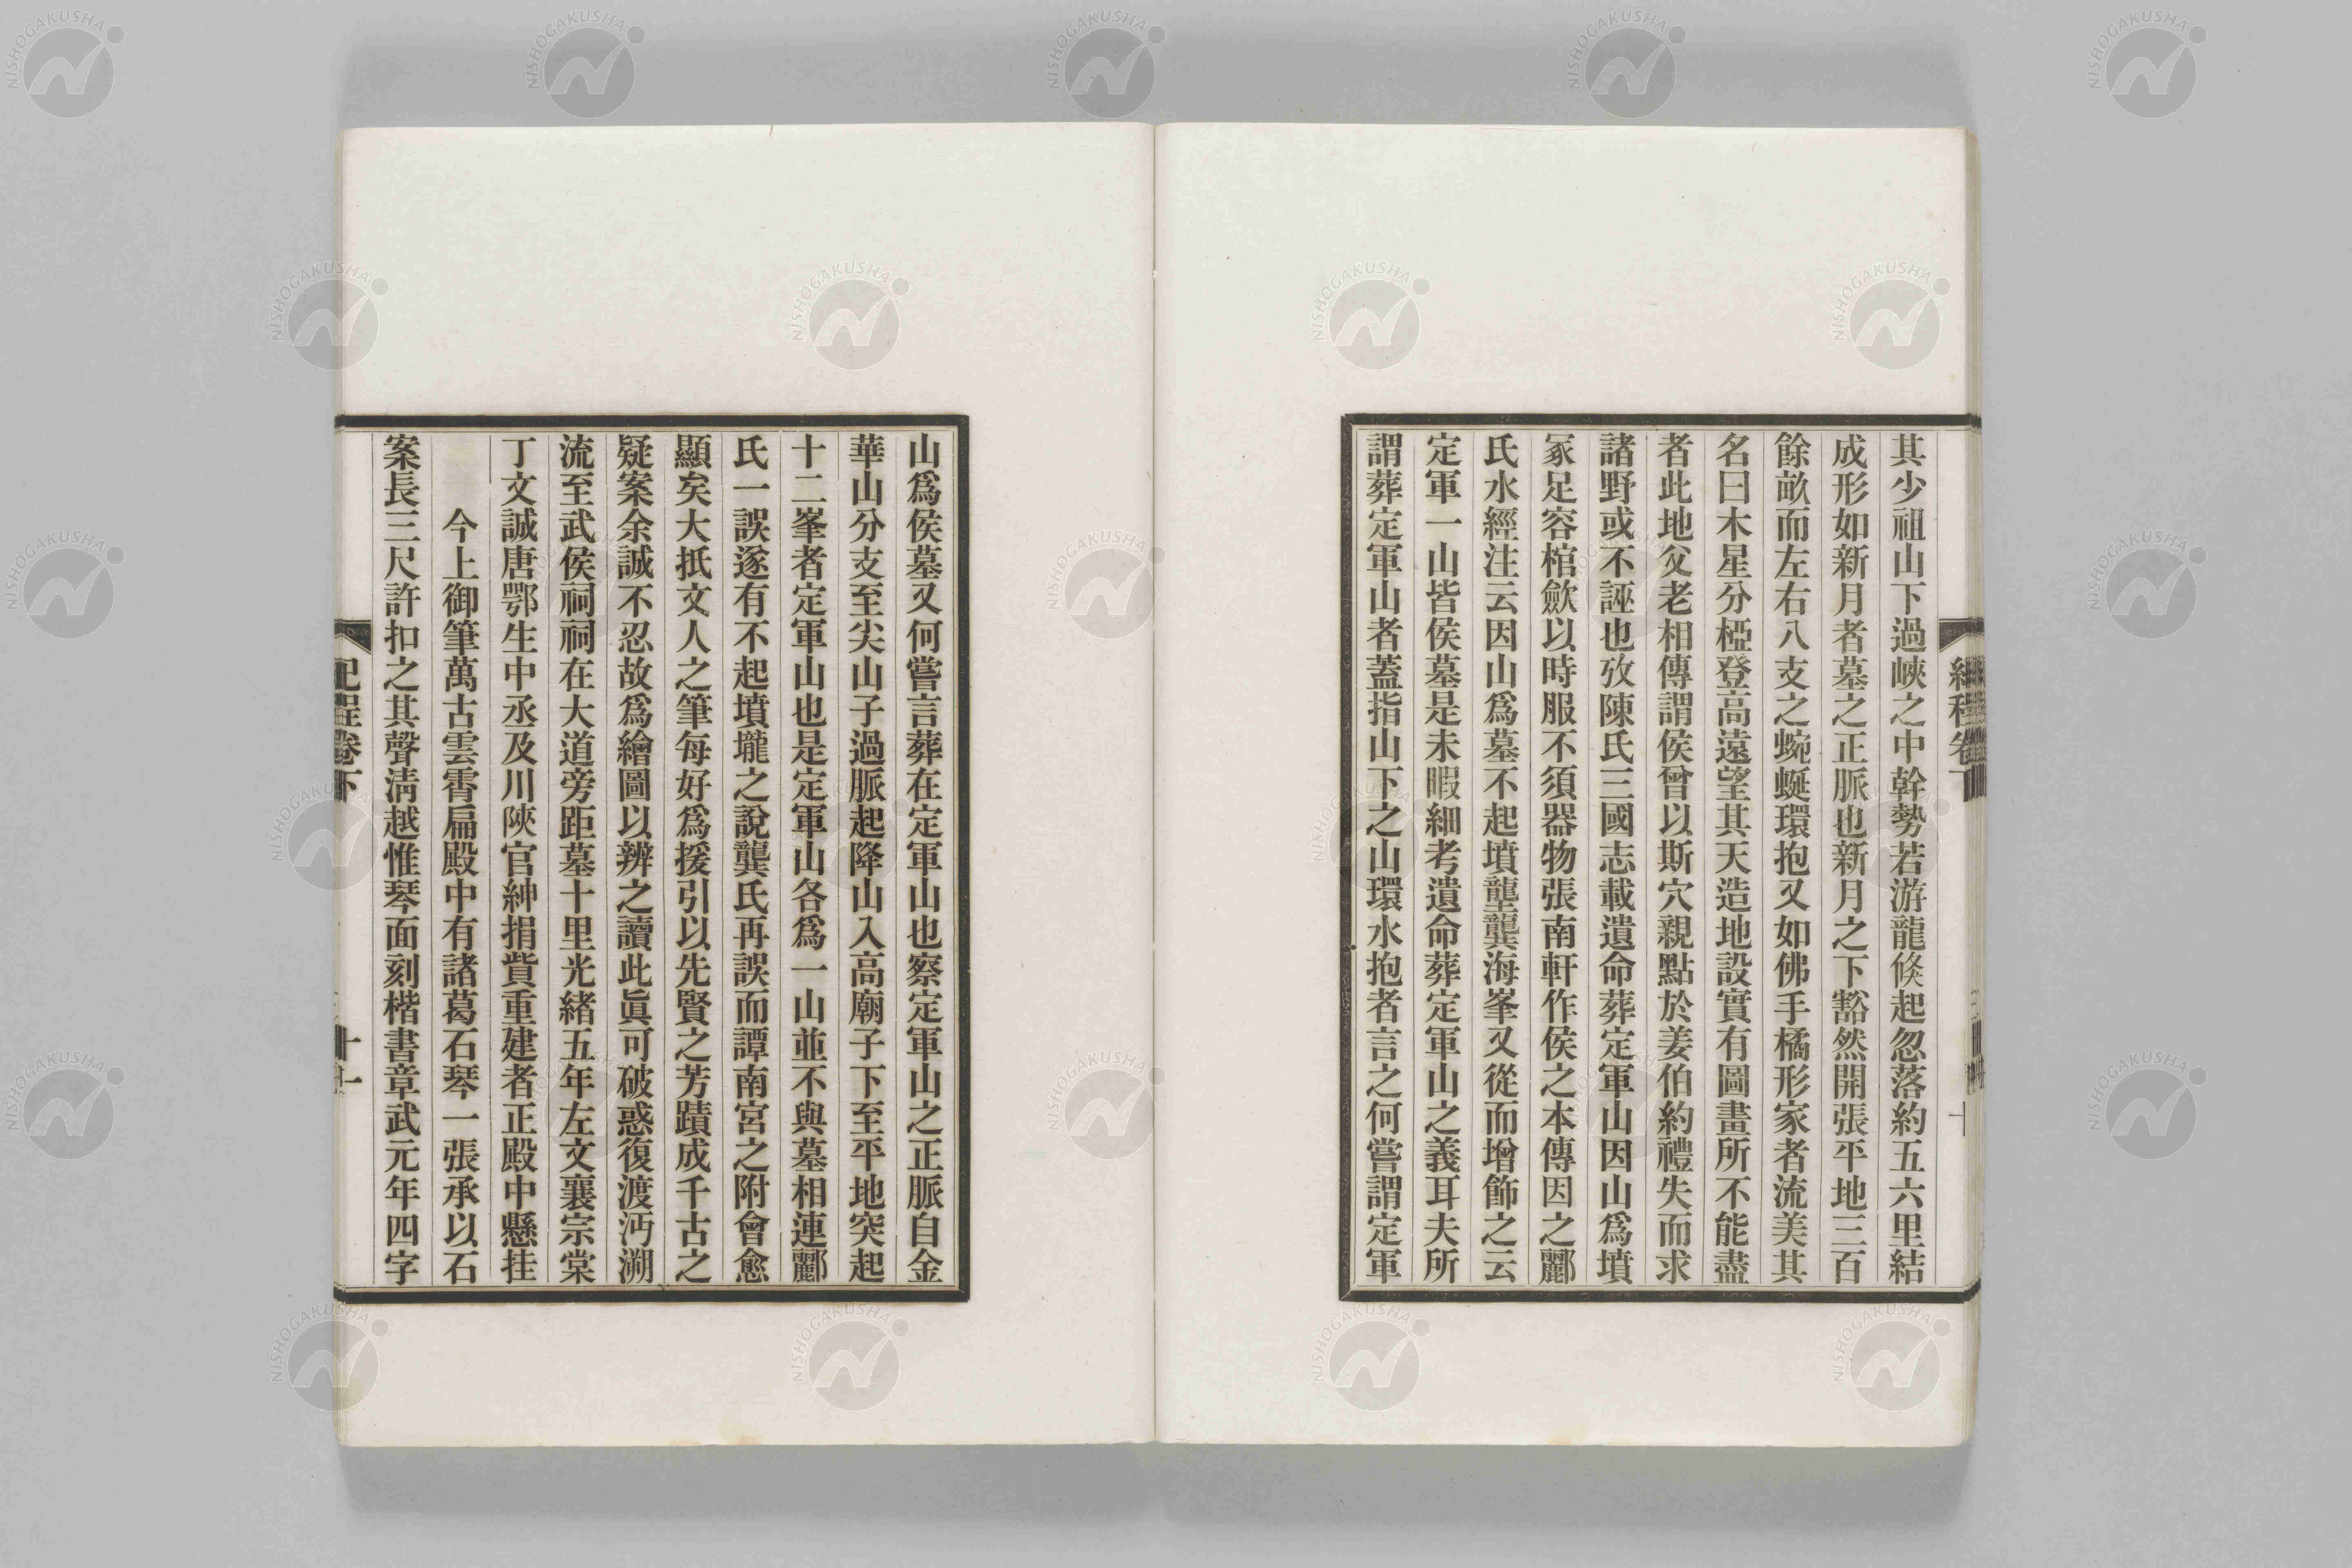 其少祖山下過峽之中幹勢若游龍倏起忽落約五六里結
成形如新月者墓之正脈也新月之下豁然開張平地三百
餘畝而左右八支之蜿蜒環抱又如佛手橘形家者流美其
名曰木星分椏登高遠望其天造地設實有圖畫所不能盡
者此地父老相傳謂侯曾以斯穴親點於姜伯約禮失而求
諸野或不誣也攷陳氏三國志載遺命葬定軍山因山爲墳
冢足容棺歛以時服不須器物張南軒作侯之本傳因之酈
氏水經注云因山爲墓不起墳壟龔海峯又從而增飾之云
定軍一山皆侯墓是未暇細考遺命葬定軍山之義耳夫所
謂葬定軍山者蓋指山下之山環水抱者言之何嘗謂定軍
山爲侯墓又何嘗言葬在定軍山也察定軍山之正脈自金
華山分支至尖山子過脈起降山入高廟子下至平地突起
十二峯者定軍山也是定軍山各爲一山並不與墓相連酈
氏一誤遂有不起墳壠之說龔氏再誤而譚南宮之附會愈
顯矣大抵文人之筆每好爲援引以先賢之芳蹟成千古之
疑案余誠不忍故爲繪圖以辨之讀此眞可破惑復渡沔溯
流至武侯祠祠在大道旁距墓十里光緒五年左文襄宗棠
丁文誠唐鄂生中丞及川陝官紳捐貲重建者正殿中懸挂
今上御筆萬古雲霄扁殿中有諸葛石琴一張承以石
案長三尺許扣之其聲淸越惟琴面刻楷書章武元年四字
紀程卷下
十一
NISHOGAKUSHA